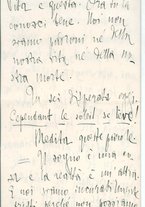 vita è questa. Ora tu la
conosci bene. Noi non
siamo padroni né della
nostra vita né della no
stra morte.
Tu sei disperato ora,
Cependant le soleil se lève!
Medita queste parole.
Il sogno è una co
sa e la realtà è un'altra
E noi siamo
perché non possiamo